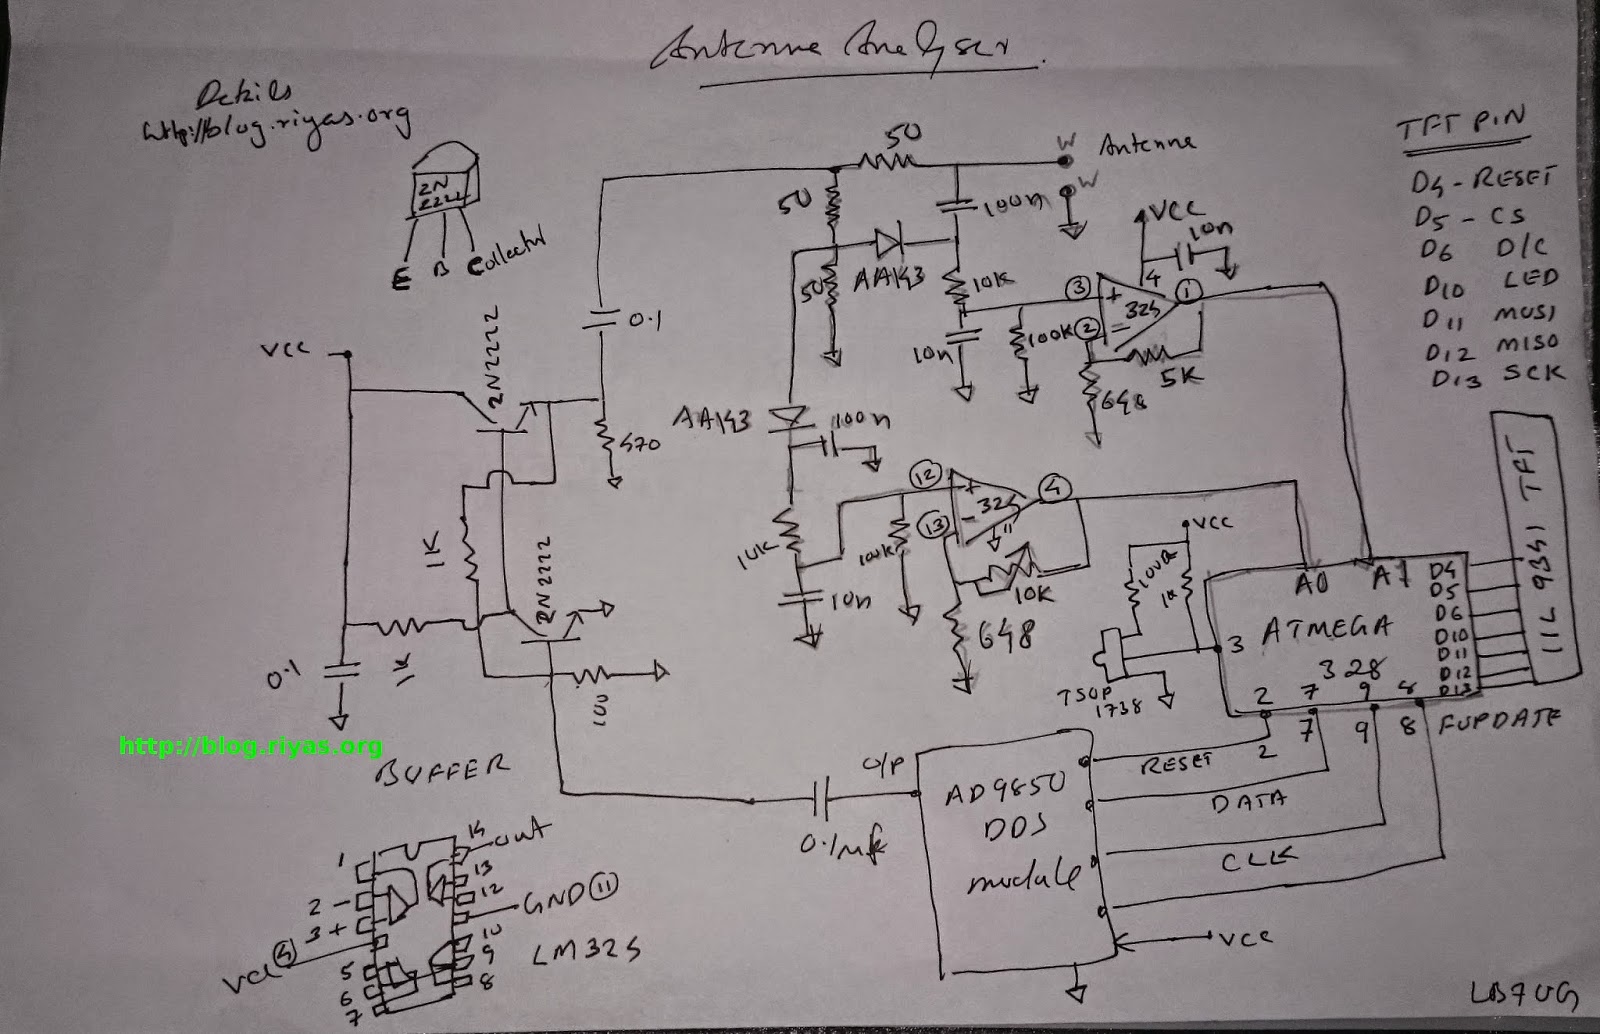 Antenna Analyser
Details
http://blog.riyas.org
2N
2222
E B Collector
50
W Antenna
W
50
100n
50
AA143
VCC
10n
10K
3
4
1
+
324
2
-
10n
100K
5K
648
0.1
VCC
2N2222
470
AA143
100n
12
+
324
4
13
-
11
10K
100K
10n
10K
648
1K
2N2222
1K
0.1
100
VCC
100R
1K
TSOP
1738
3
A0 A7
ATMEGA
328
2 7 9 8
D4
D5
D6
D10
D11
D12
D13
IIL 9341 TFT
TFT PIN
D4 - RESET
D5 - CS
D6 D/C
D10 LED
D11 MOSI
D12 MISO
D13 SCK
2 7 9 8 FUPDATE
http://blog.riyas.org
BUFFER
O/P
0.1mfk
AD9850
DDS
module
RESET
DATA
CLK
VCC
1
2 -
3 +
VCC 4
5
6
7
14 out
13
12
GND 11
10
9
8
LM324
LB7UG